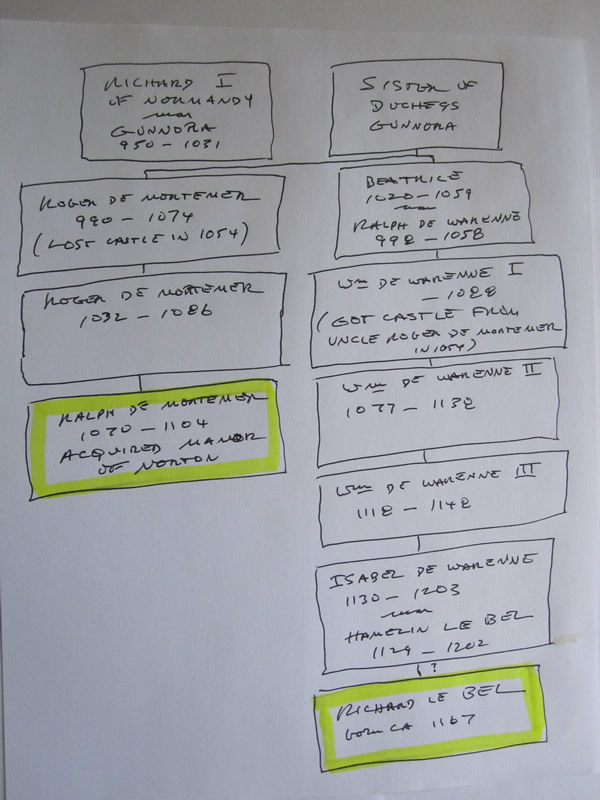 RICHARD I
OF NORMANDY
mar
GUNNORA
950 - 1031
SISTER OF
DUCHESS
GUNNORA
ROGER DE MORTEMER
990 - 1074
(LOST CASTLE IN 1054)
BEATRICE
1020 - 1059
mar
RALPH DE WARENNE
998 - 1058
ROGER DE MORTEMER
1032 - 1086
Wm DE WARENNE I
- 1088
(GOT CASTLE FROM
UNCLE ROGER DE MORTEMER
IN 1054)
RALPH DE MORTEMER
1070 - 1104
ACQUIRED MANOR
OF NORTON
Wm DE WARENNE II
1077 - 1138
Wm DE WARENNE III
1118 - 1148
ISABEL DE WARENNE
1130 - 1203
mar
HAMELIN LE BEL
1129 - 1202
?
RICHARD LE BEL
born CA 1167